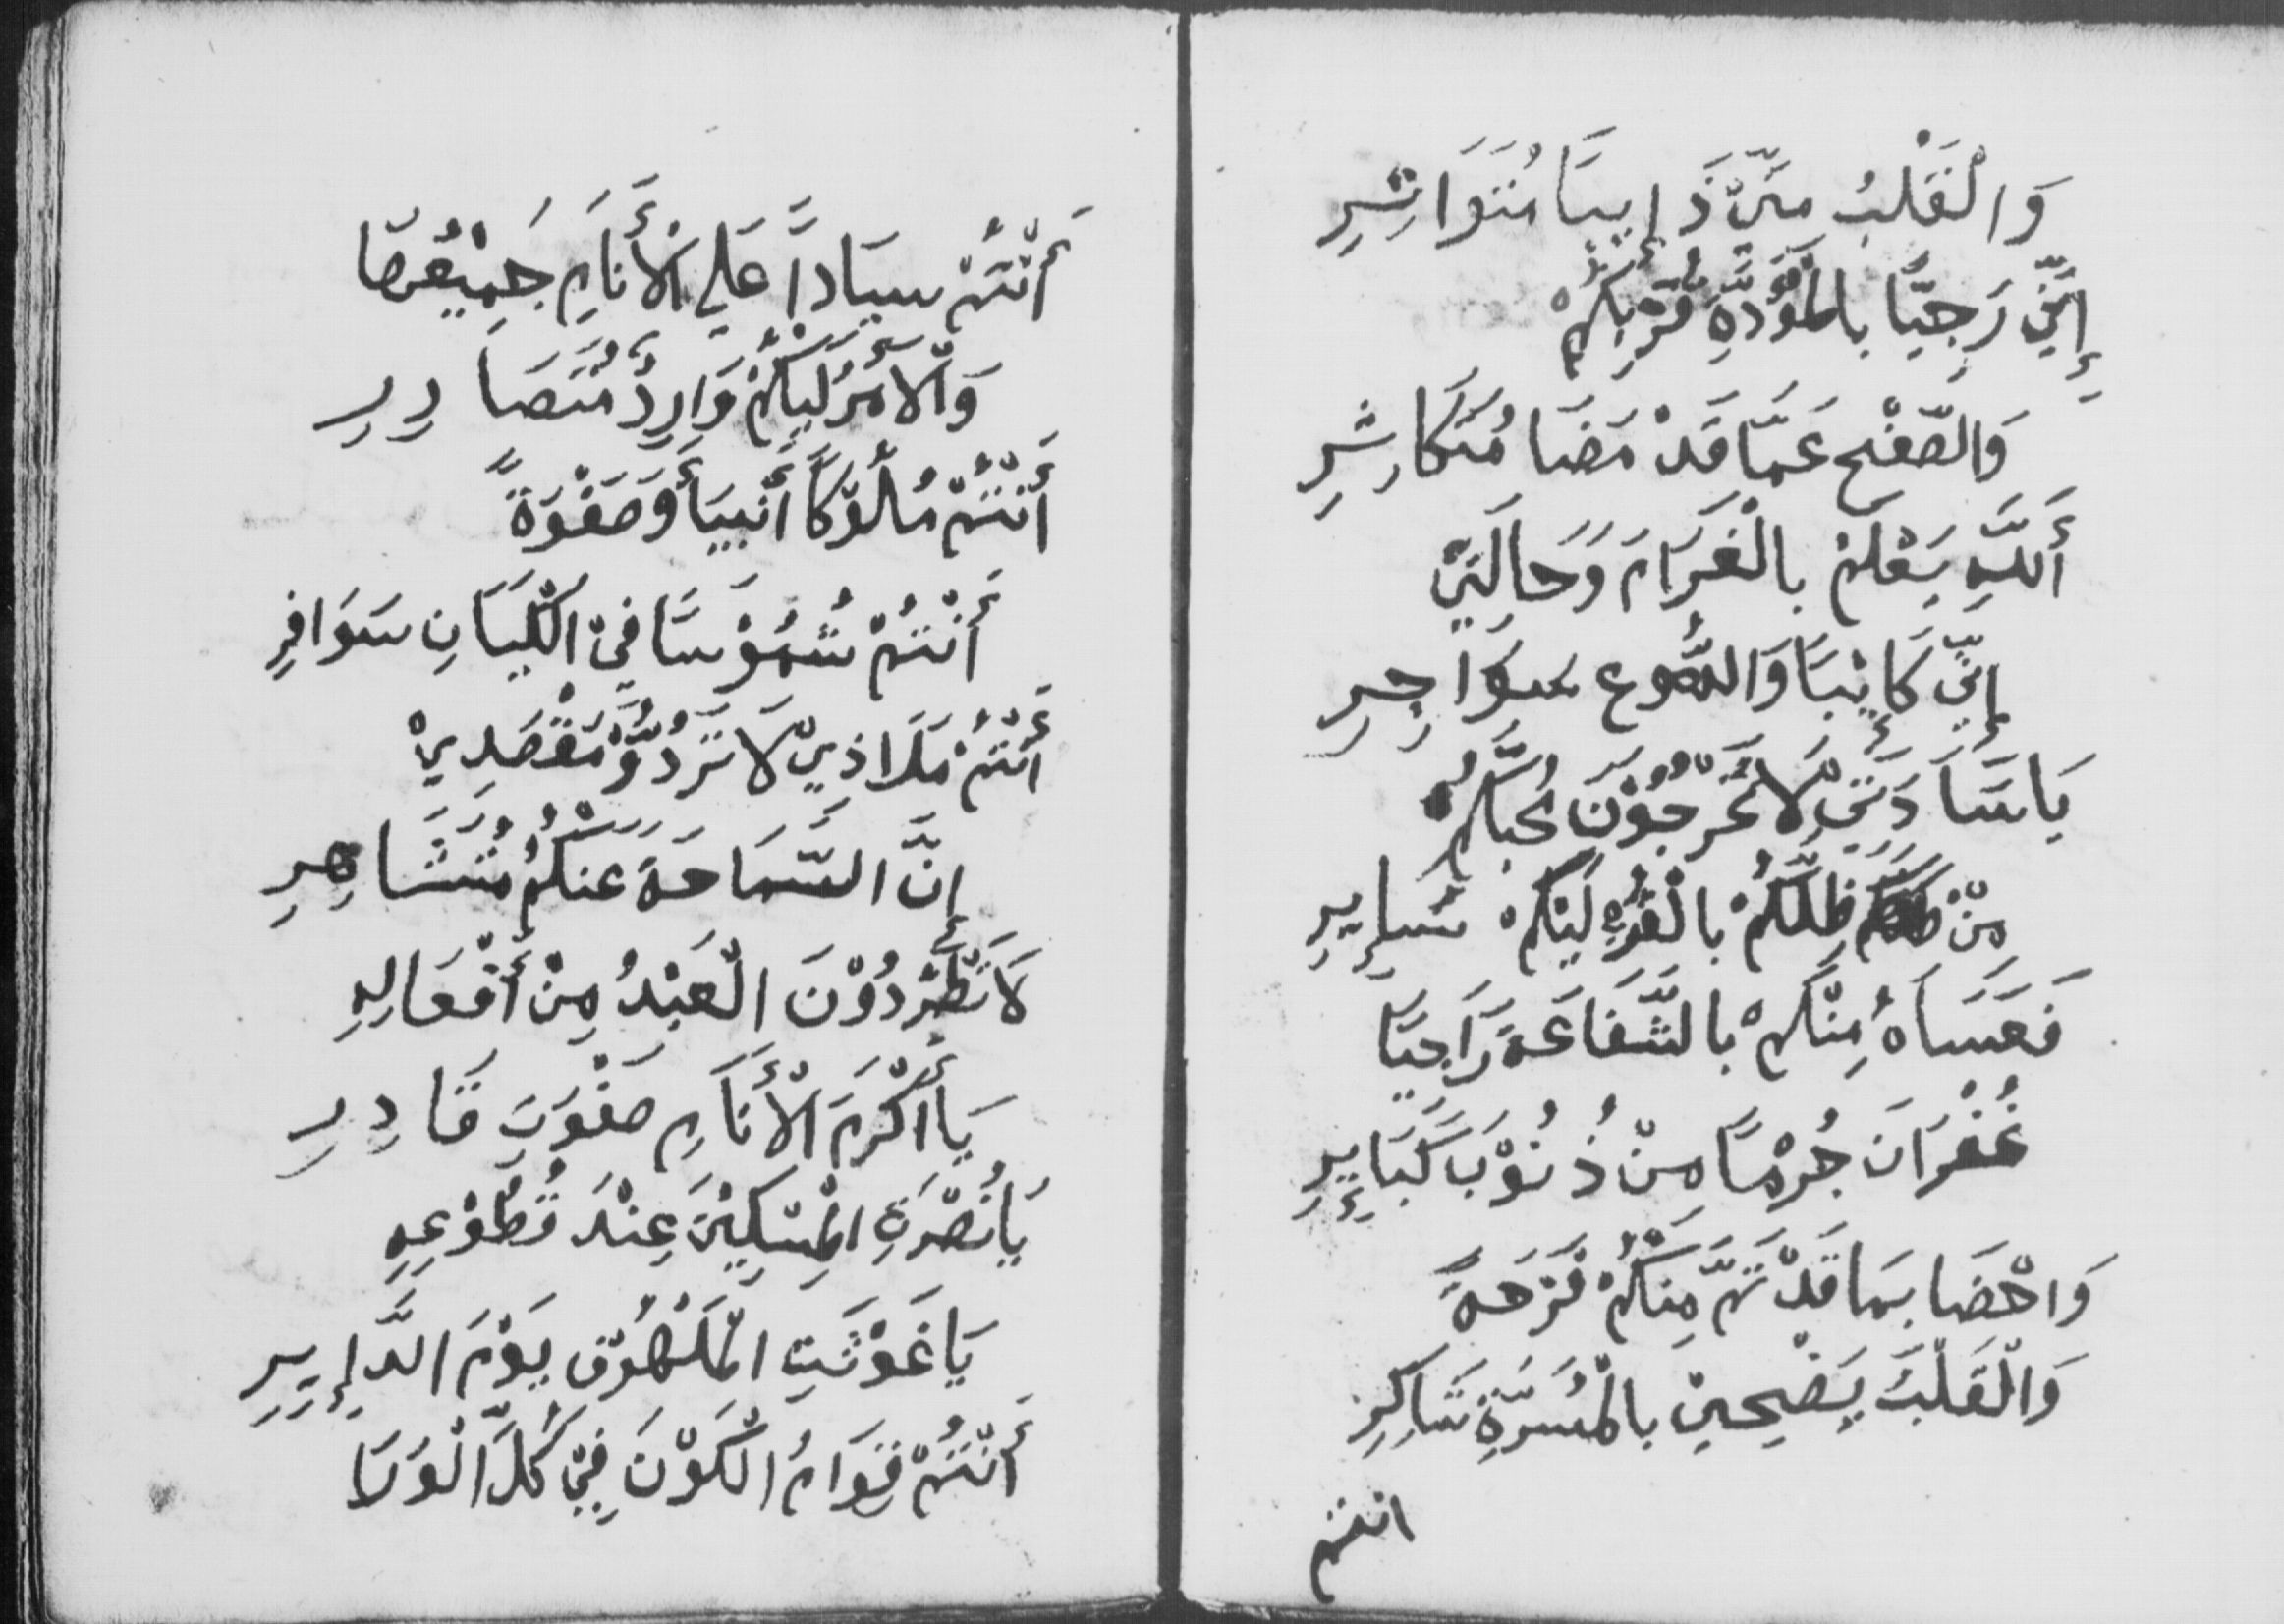 وَالْقَلْبُ مِنِّيّ ذَإِيبًا مُتَوَاثِرِ
إِنِّيّ رَجِيًّا بِالْمَوَدَّةِ قُرْبِكُمْ
وَالصَّفْحِ عَمَّا قَدْ مَضَا مُتَكَاثِرِ
أَللَّهِ يَعْلَمْ بِالْغَرَامَ وَحَالَتِيْ
إِنِّيّ كَإِيْبًا وَالدُّمُوعِ سَوَاجِرِ
يَاسَادَتِيْ لَاتَخْرِجُوْنَ مُحِبَّكُمْ
مِنْ ظِلِّكُمْ بِالْقُرْبِ لَيْكُمْ سَإِيرِ
فَعَسَاهُ مِنْكُمْ بِالشَّفَاعَةَ رَاجِيًا
غُفْرَانَ جُرْمًا مِنْ ذُنُوْبَ كَبَإِيرِ
وَاحْضَا بِمَا قَدْ تَمَّ مِنْكُمْ فَرْحَةً
وَالْقَلْبَ يَضْحِيْ بِالْمَسَرَّةِ شَاكِرِ
انتم
أَنْتُمْ سِيَادًا عَلَي الْأَنَامِ جَمِيْعُهَا
وَالْأَمْرُ لَيْكُمْ وَارِدٌ مُتَصَادِرِ
أَنْتُمْ مُلُوْكًا أَنْبِيَأَ وَصَفْوَةً
أَنْتُمْ شُمُوْسًا فِيْ الْكِيَانِ سَوَافِرِ
أَنْتُمْ مَلَاذِيْ لَا تَرُدُّوْ مَقْصَدِيْ
إِنَّ السَّمَاحَةَ عَنْكُمُ مُتَشَاهِرِ
لَاتَطْرُدُوْنَ الْعَبْدُ مِنْ أَفْعَالِهِ
يَاأَكْرَمَ الْأَنَامِ صَفْوَتَ قَادِرِ
يَانُصْرَةِ الْمِسْكِيْنَ عِنْدَ قُطُوْعِهِ
يَاغَوْثَتِ الْمَلْهُوْفِ يَوْمَ الدَّإِيرِ
أَنْتُمْ قِوَامُ الْكَوْنَ فِيْ كُلِّ الْوَرَا